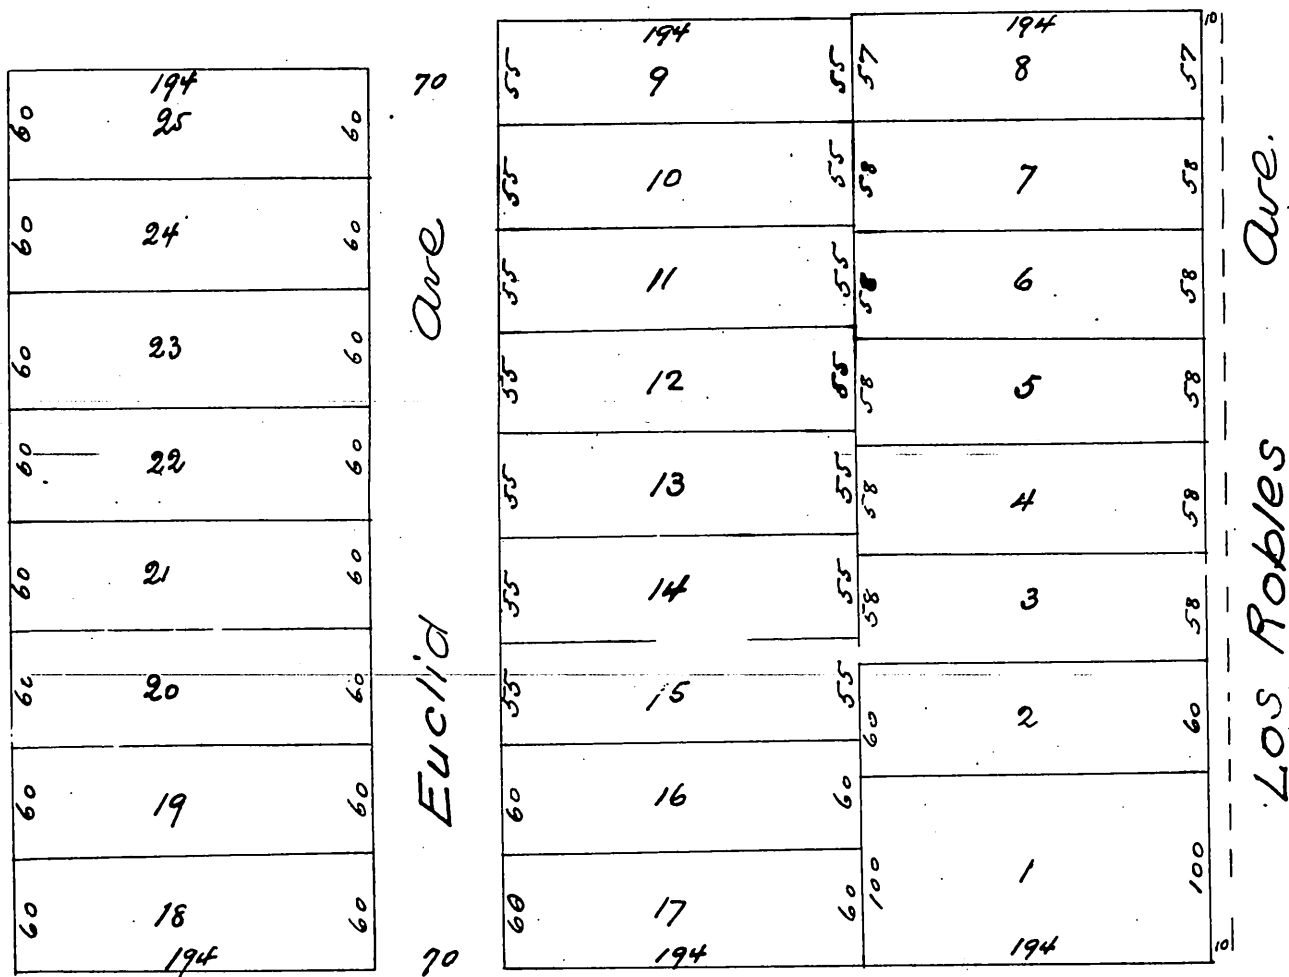 194
25
60
60
24
60
60
23
60
60
22
60
60
21
60
60
20
60
60
19
60
60
18
60
60
194
70
Euclid Ave
70
194
9
55
55
10
55
55
11
55
55
12
55
55
13
55
55
14
55
55
15
55
55
16
60
60
17
60
60
194
194
8
57
57
7
58
58
6
58
58
5
58
58
4
58
58
3
58
58
2
60
60
1
100
100
194
10
10
Los Robles Ave.